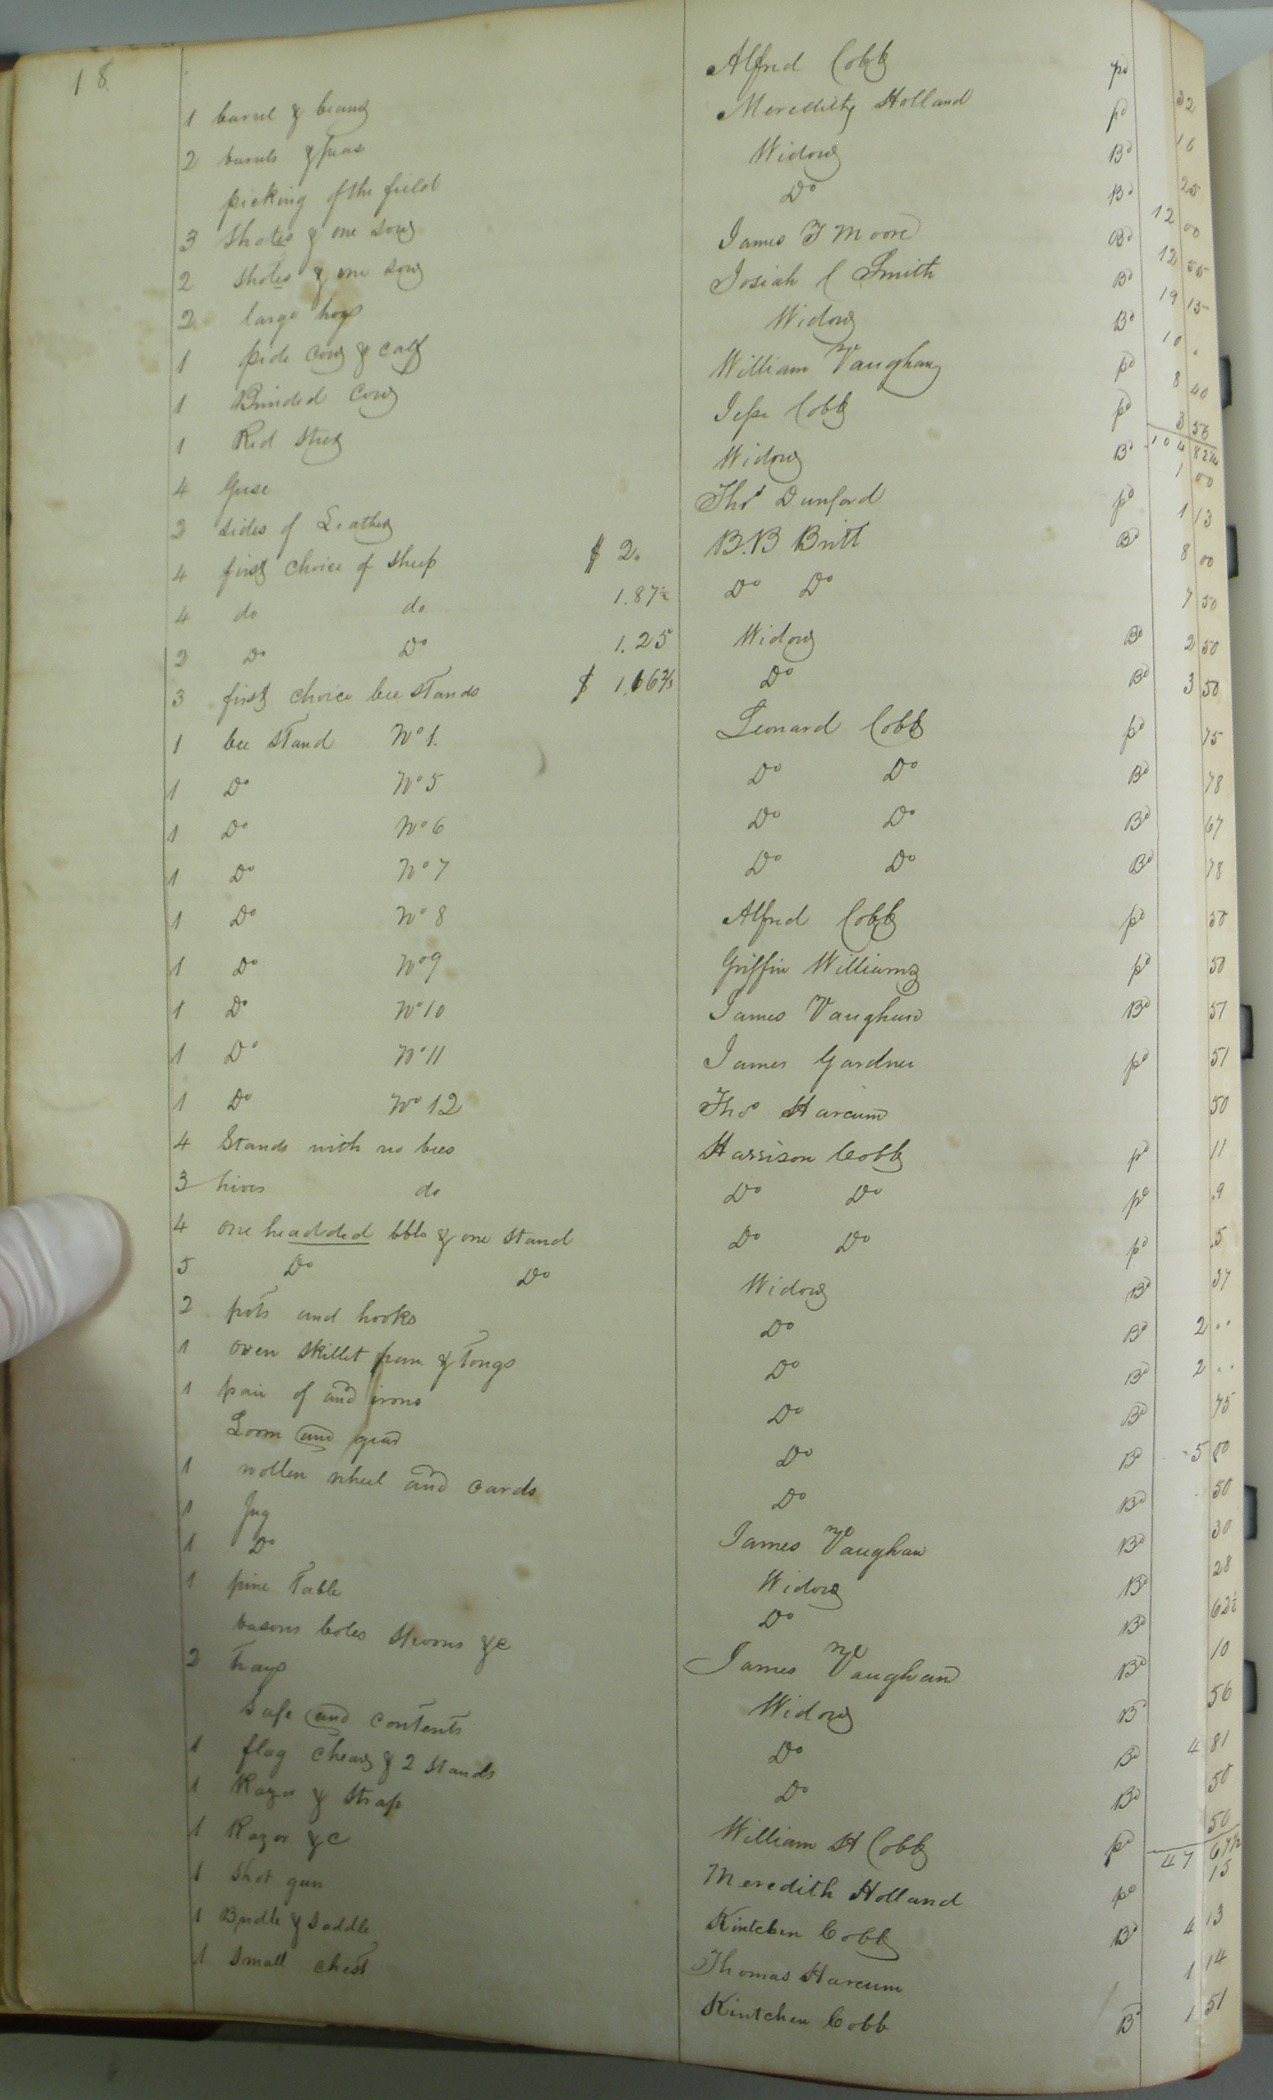 18.
1 barrel & beans Alfred Cobb pd 32
2 barrels & peas Meredith Holland pd 16
picking of the field Widow Bd 25
3 Shotes & one sow Do Bd 12 00
2 shotes & one sow James F Moore Bd 12 55
2 large hogs Josiah C Smith Bd 19 15
1 pide cow & calf Widow Bd 10 .
1 Brinded Cow William Vaughan pd 8 40
1 Red steer Jesse Cobb pd 3 56
104 82¼
4 Geese Widow Bd 1 00
2 sides of Leather Thos Dunford pd 1 13
4 first choice of sheep $ 2. B.B Britt Bd 8 00
4 do do 1.87½ Do Do 7 50
2 Do Do 1.25 Widow Bd 2 50
3 first choice bee stands $ 1.16⅔ Do Bd 3 50
1 bee stand No 1. Leonard Cobb pd 75
1 Do No 5 Do Do Bd 78
1 Do No 6 Do Do Bd 67
1 Do No 7 Do Do Bd 78
1 Do No 8 Alfred Cobb pd 50
1 Do No 9 Griffin Williams pd 50
1 Do No 10 James Vaughan Bd 51
1 Do No 11 James Gardner pd 51
1 Do No 12 Thos Harcum 50
4 Stands with no bees Harrison Cobb pd 11
3 hives do Do Do pd .9
4 one headded bbls & one stand Do Do pd .5
5 Do Do Widow Bd 37
2 pots and hooks Do Bd 2 ..
1 oven skillet pan & Tongs Do Bd 2 ..
1 pair of and irons Do Bd 75
Loom and gear Do Bd 5 00
1 wollen wheel and cards Do Bd 50
1 Jug James Vaughan Bd 30
1 Do Widow Bd 28
1 pine Table Do Bd 62½
basons boles spoons &c James Vaughan Bd 10
2 Trays Widow Bd 56
Safe and contents Do Bd 4 81
1 flag chear & 2 stands Do Bd 50
1 Razor & Strap William H Cobb pd 50
47 67½
1 Razor &c Meredith Holland pd 15
1 Shot gun Kintchen Cobb Bd 4 13
1 Bridle & Saddle Thomas Harcum 1 14
1 Small chest Kintchen Cobb Bd 1 51